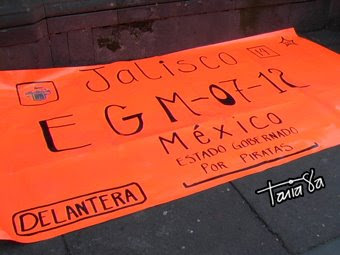 Jalisco
EGM-07-12
México
ESTADO GOBERNADO
POR PIRATAS
DELANTERA